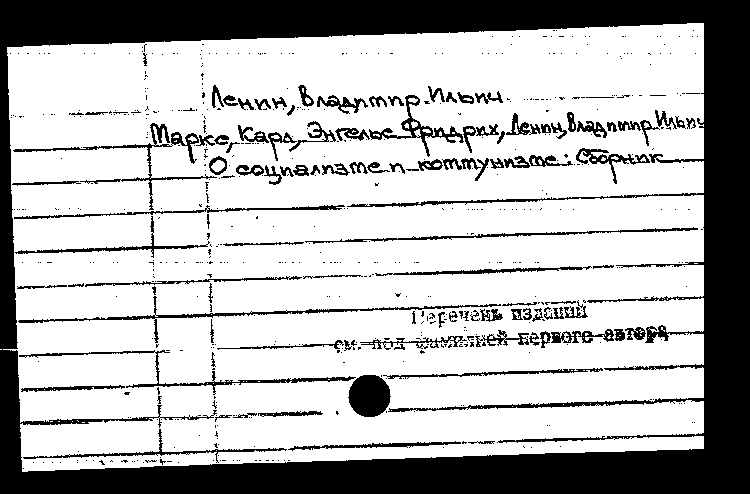 Ленин, Владимир Ильич
Маркс, Карл, Энгельс Фридрих, Ленин, Владимир Ильич
О социализме и коммунизме: Сборник
Перечень изданий
см. под фамилией первого автора